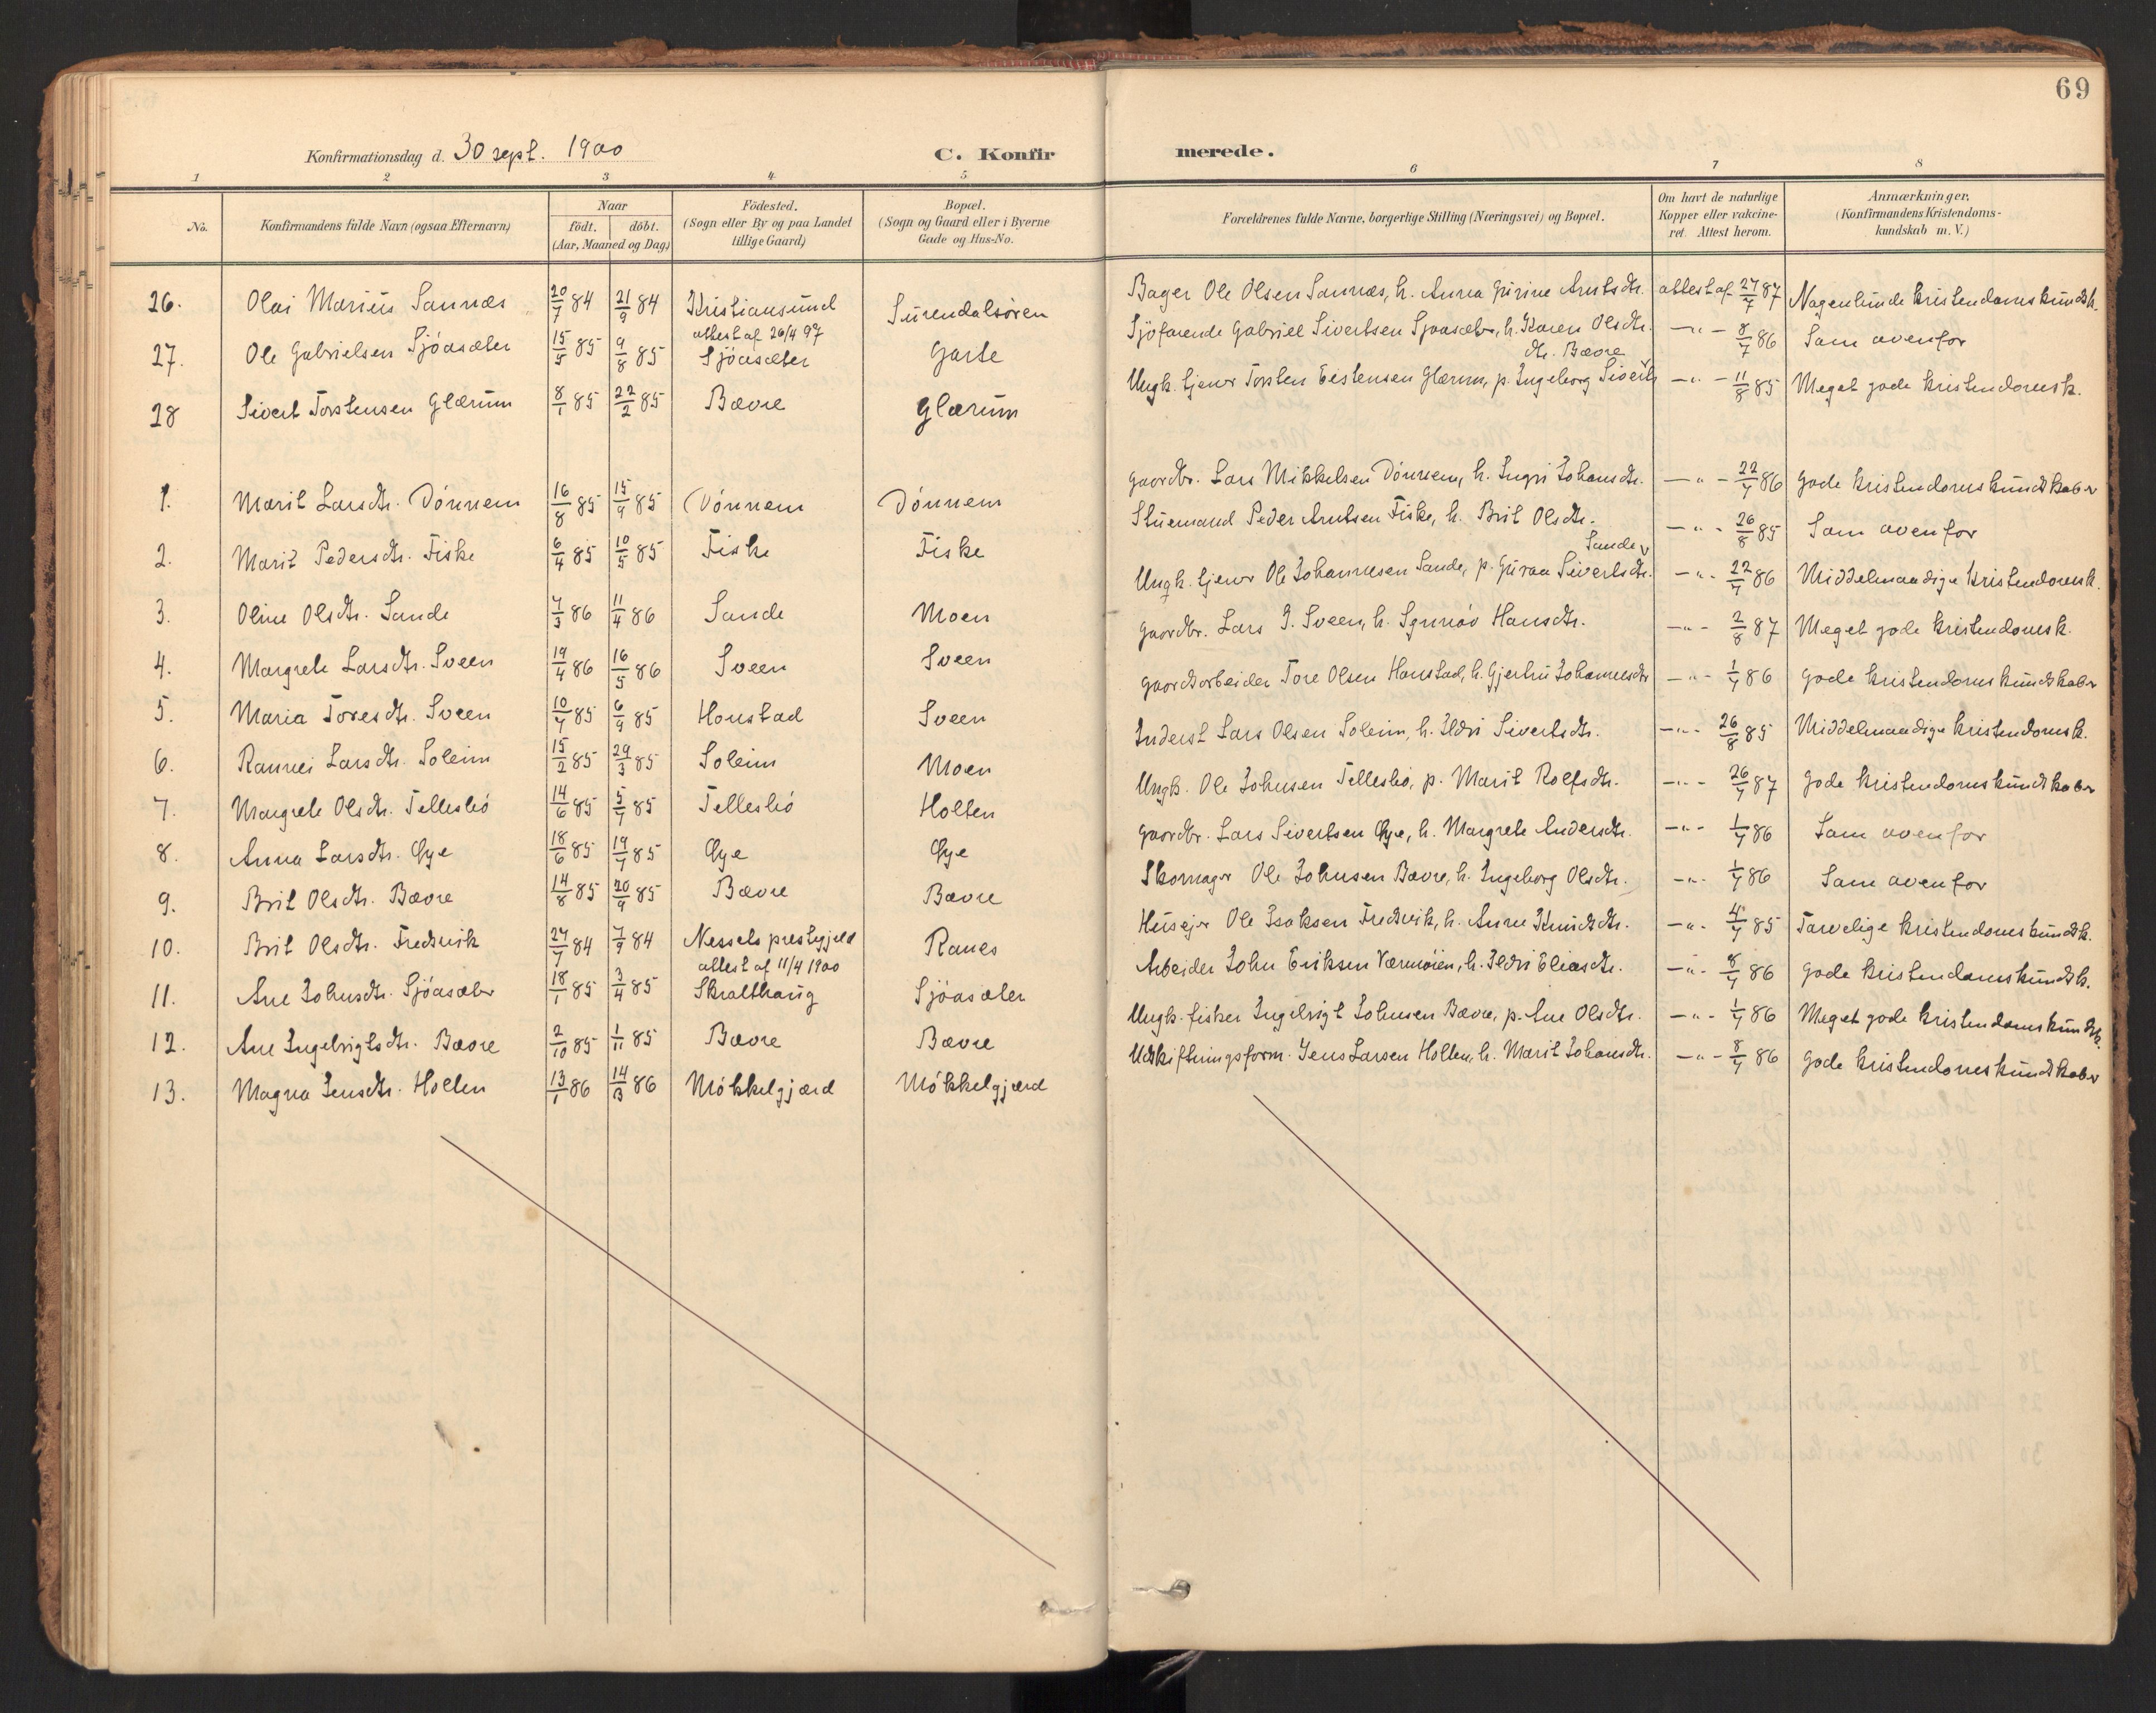 69
Konfirmationsdag d. 30 sept. 1900
C. Konfirmerede.
1 2 3 4 5 6 7 8
No.
Konfirmandens fulde Navn (ogsaa Efternavn)
Naar
födt. döbt.
(Aar, Maaned og Dag)
Födested.
(Sogn eller By og paa Landet
tillige Gaard)
Bopæl.
(Sogn og Gaard eller i Byerne
Gade og Hus-No.
Forældrenes fulde Navne, borgerlige Stilling (Næringsvei) og Bopæl.
Om havt de naturlige
Kopper eller vakcine-
ret. Attest herom.
Anmærkninger.
(Konfirmandens Kristendoms-
kundskab m. V.)
26. Olai Marius Sannæs 20/7 84 21/9 84 Kristiansund Surendalsøren Bager Ole Olsen Sannæs, h. Anna Gurine Arntsdtr. attest af 27/7 87 Nogenlunde kristendomskundsk.
attest af 26/4 97
27. Ole Gabrielsen Sjöasæter 15/5 85 9/8 85 Sjöasæter Garte Sjöfarende Gabriel Sivertsen Sjöasæter, h. Karen Olsdtr. —"— 8/7 86 Som ovenfor
dtr. Bævre
28 Sivert Torstensen Glærum 8/1 85 22/2 85 Bævre Glærum Ungk. tjener Torsten Eestensen Glærum, p. Ingeborg Siverts —"— 11/8 85 Meget gode kristendomsk.
1. Marit Larsdtr. Dönnem 16/8 85 15/9 85 Dönnem Dönnem Gaardbr. Lars Mikkelsen Dönnem, h. Ingri Johansdtr. —"— 22/7 86 Gode kristendomskundskaber
2. Marit Pedersdtr. Fiske 6/4 85 10/5 85 Fiske Fiske Stuemand Peder Arntsen Fiske, h. Brit Olsdtr. —"— 26/8 85 Som ovenfor
Sande
3. Oline Olsdtr. Sande 7/3 86 11/4 86 Sande Moen Ungk. tjener Ole Johannesen Sande, p. Guraa Sivertsdtr. —"— 22/7 86 Middelmaadige kristendomsk.
4. Margrete Larsdtr. Sveen 19/4 86 16/5 86 Sveen Sveen Gaardbr. Lars I. Sveen, h. Sgunöv Hansdtr. —"— 2/8 87 Meget gode kristendomsk.
5. Maria Toresdtr. Sveen 10/7 85 6/9 85 Honstad Sveen Gaardsarbeider Tore Olsen Honstad, h. Gjertru Johannesdtr —"— 1/7 86 Gode kristendomskundskaber
6. Rannei Larsdtr. Soleim 15/2 85 29/3 85 Soleim Moen Inderst Lars Olsen Soleim, h. Ildri Sivertsdtr. —"— 26/8 85 Middelmaadige kristendomsk.
7. Margrete Olsdtr. Tellesbö 14/6 85 5/7 85 Tellesbö Holten Ungk. Ole Johnsen Tellesbö, p. Marit Rolfsdtr. —"— 26/7 87 Gode kristendomskundskaber
8. Anna Larsdtr. Öye 18/6 85 19/7 85 Öye Öye Gaardbr. Lars Sivertsen Öye, h. Margrete Andersdtr. —"— 1/7 86 Som ovenfor
9. Brit Olsdtr. Bævre 14/8 85 20/9 85 Bævre Bævre Skomager Ole Johnsen Bævre, h. Ingeborg Olsdtr. —"— 1/7 86 Som ovenfor
10. Brit Olsdtr. Fredsvik 27/7 84 7/9 84 Nessets prestegjeld Ranes Huseier Ole Isaksen Fredsvik, h. Anne Knudsdtr. —"— 4/7 85 Tarvelige kristendomskundsk.
attest af 11/4 1900
11. Ane Johnsdtr. Sjöasæter 18/1 85 3/4 85 Skralthaug Sjöasæter Arbeider John Eriksen Værmöien, h. Ildri Eliasdtr. —"— 8/7 86 Gode kristendomskundsk.
12. Ane Ingebrigtsdtr. Bævre 2/10 85 1/11 85 Bævre Bævre Ungk. fisker Ingebrigt Johnsen Bævre, p. Ane Olsdtr. —"— 1/7 86 Meget gode kristendomskundsk.
13. Magna Jensdtr. Holten 13/1 86 14/3 86 Mökkelgjærd Mökkelgjærd Udskiftningsform. Jens Larsen Holten, h. Marit Johansdtr. —"— 8/7 86 Gode kristendomskundskaber